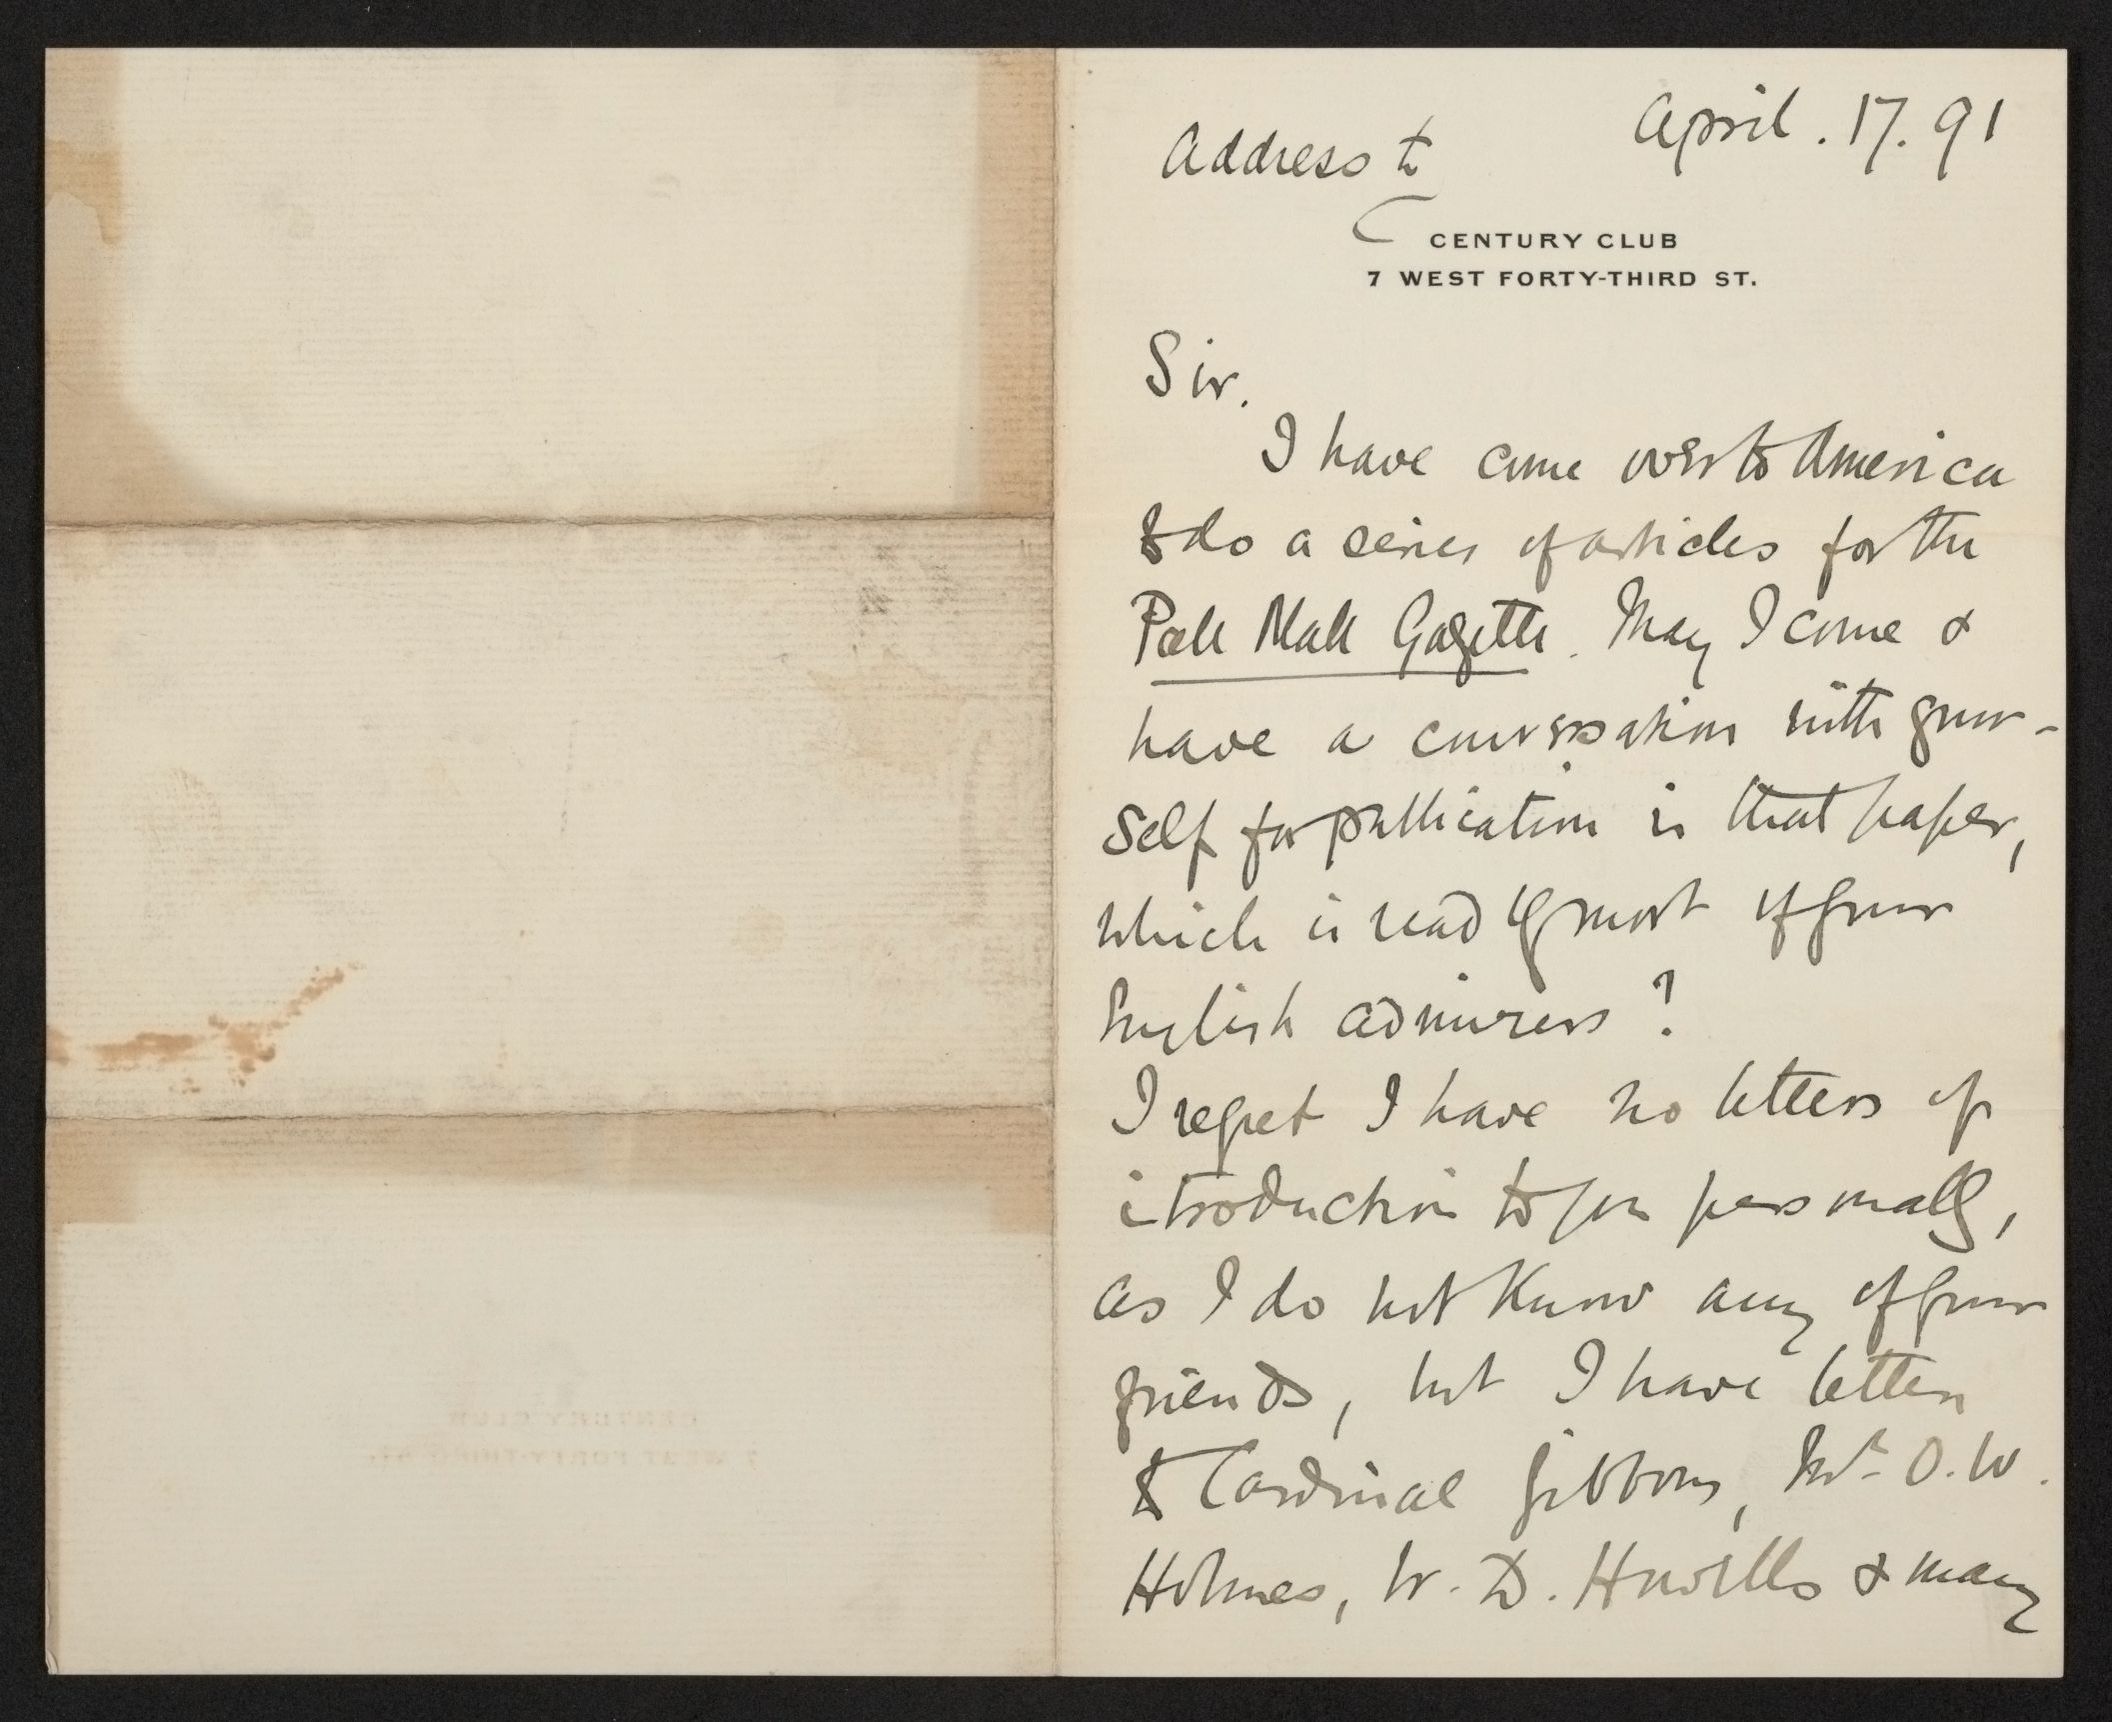 April. 17. 91
Address to
CENTURY CLUB
7 WEST FORTY-THIRD ST.
Sir.
I have come over to America
to do a series of articles for the
Pall Mall Gazette. May I come &
have a conversation with your-
self for publication in that paper,
which is read by most of your
English admirers?
I regret I have no letters of
itroduction to you personally,
as I do not know any of your
friends, but I have letters
to Cardinal Gibbons, Mr. O. W.
Holmes, W. D. Howells & many
CENTURY CLUB
7 WEST FORTY-THIRD ST.